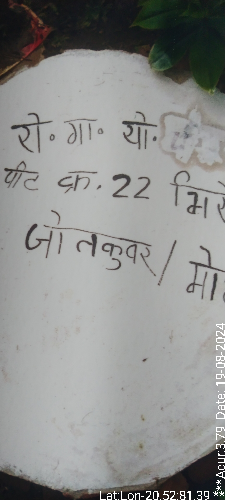 रो॰ गा॰ यो॰
पीट क्र. 22
जोतकुवर /
Lat:Lon-20.52:81.39
***Acur:3.79 Date: 19-08-2024